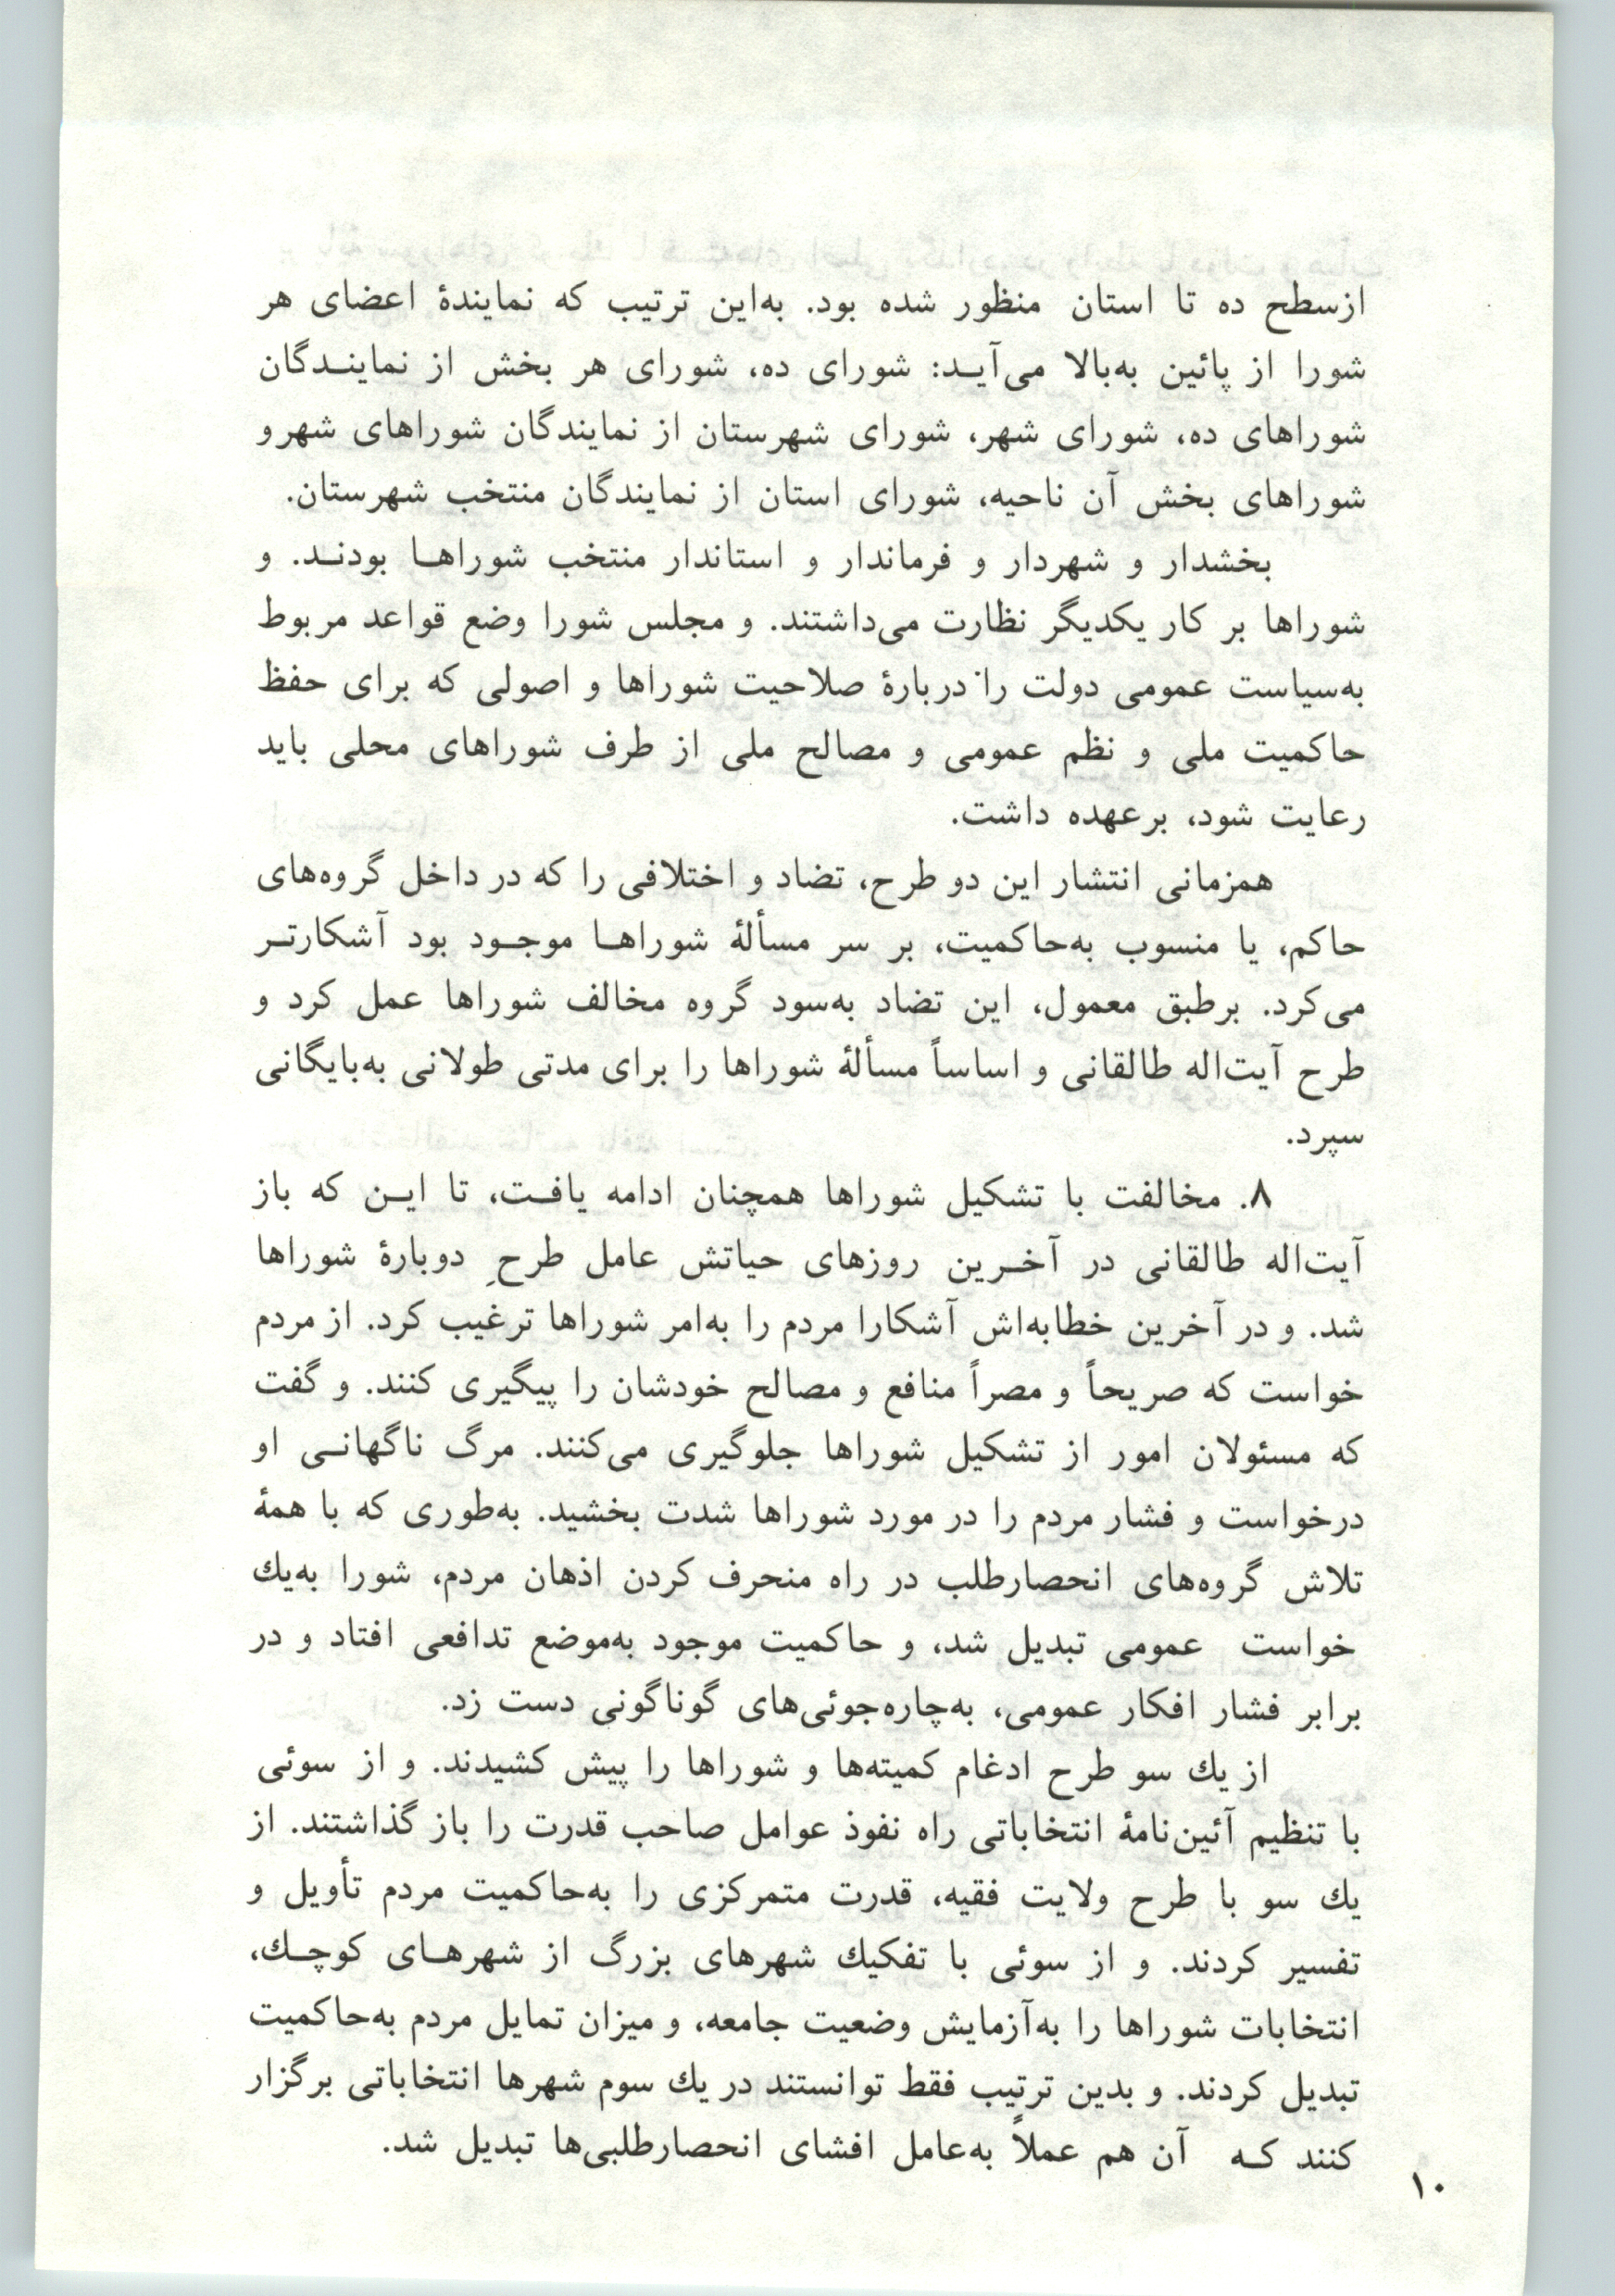 ازسطح ده تا استان منظور شده بود. به‌این ترتیب که نمایندهٔ اعضای هر
شورا از پائین به‌بالا می‌آیـد: شورای ده، شورای هر بخش از نماینـدگان
شوراهای ده، شورای شهر، شورای شهرستان از نمایندگان شوراهای شهرو
شوراهای بخش آن ناحیه، شورای استان از نمایندگان منتخب شهرستان.
بخشدار و شهردار و فرماندار و استاندار منتخب شوراهـا بودنـد. و
شوراها بر کار یکدیگر نظارت می‌داشتند. و مجلس شورا وضع قواعد مربوط
به‌سیاست عمومی دولت را دربارهٔ صلاحیت شوراها و اصولی که برای حفظ
حاکمیت ملی و نظم عمومی و مصالح ملی از طرف شوراهای محلی باید
رعایت شود، برعهده داشت.
همزمانی انتشار این دو طرح، تضاد و اختلافی را که در داخل گروه‌های
حاکم، یا منسوب به‌حاکمیت، بر سر مسألهٔ شوراهـا موجـود بود آشکارتـر
می‌کرد. برطبق معمول، این تضاد به‌سود گروه مخالف شوراها عمل کرد و
طرح آیت‌اله طالقانی و اساساً مسألهٔ شوراها را برای مدتی طولانی به‌بایگانی
سپرد.
۸. مخالفت با تشکیل شوراها همچنان ادامه یافـت، تا ایـن که باز
آیت‌اله طالقانی در آخـرین روزهای حیاتش عامل طرحِ دوبارهٔ شوراها
شد. و در آخرین خطابه‌اش آشکارا مردم را به‌امر شوراها ترغیب کرد. از مردم
خواست که صریحاً و مصراً منافع و مصالح خودشان را پیگیری کنند. و گفت
که مسئولان امور از تشکیل شوراها جلوگیری می‌کنند. مرگ ناگهانـی او
درخواست و فشار مردم را در مورد شوراها شدت بخشید. به‌طوری که با همهٔ
تلاش گروه‌های انحصارطلب در راه منحرف کردن اذهان مردم، شورا به‌یك
خواست عمومی تبدیل شد، و حاکمیت موجود به‌موضع تدافعی افتاد و در
برابر فشار افکار عمومی، به‌چاره‌جوئی‌های گوناگونی دست زد.
از یك سو طرح ادغام کمیته‌ها و شوراها را پیش کشیدند. و از سوئی
با تنظیم آئین‌نامهٔ انتخاباتی راه نفوذ عوامل صاحب قدرت را باز گذاشتند. از
یك سو با طرح ولایت فقیه، قدرت متمرکزی را به‌حاکمیت مردم تأویل و
تفسیر کردند. و از سوئی با تفکیك شهرهای بزرگ از شهرهـای کوچـك،
انتخابات شوراها را به‌آزمایش وضعیت جامعه، و میزان تمایل مردم به‌حاکمیت
تبدیل کردند. و بدین ترتیب فقط توانستند در یك سوم شهرها انتخاباتی برگزار
کنند کـه آن هم عملاً به‌عامل افشای انحصارطلبی‌ها تبدیل شد.
۱۰